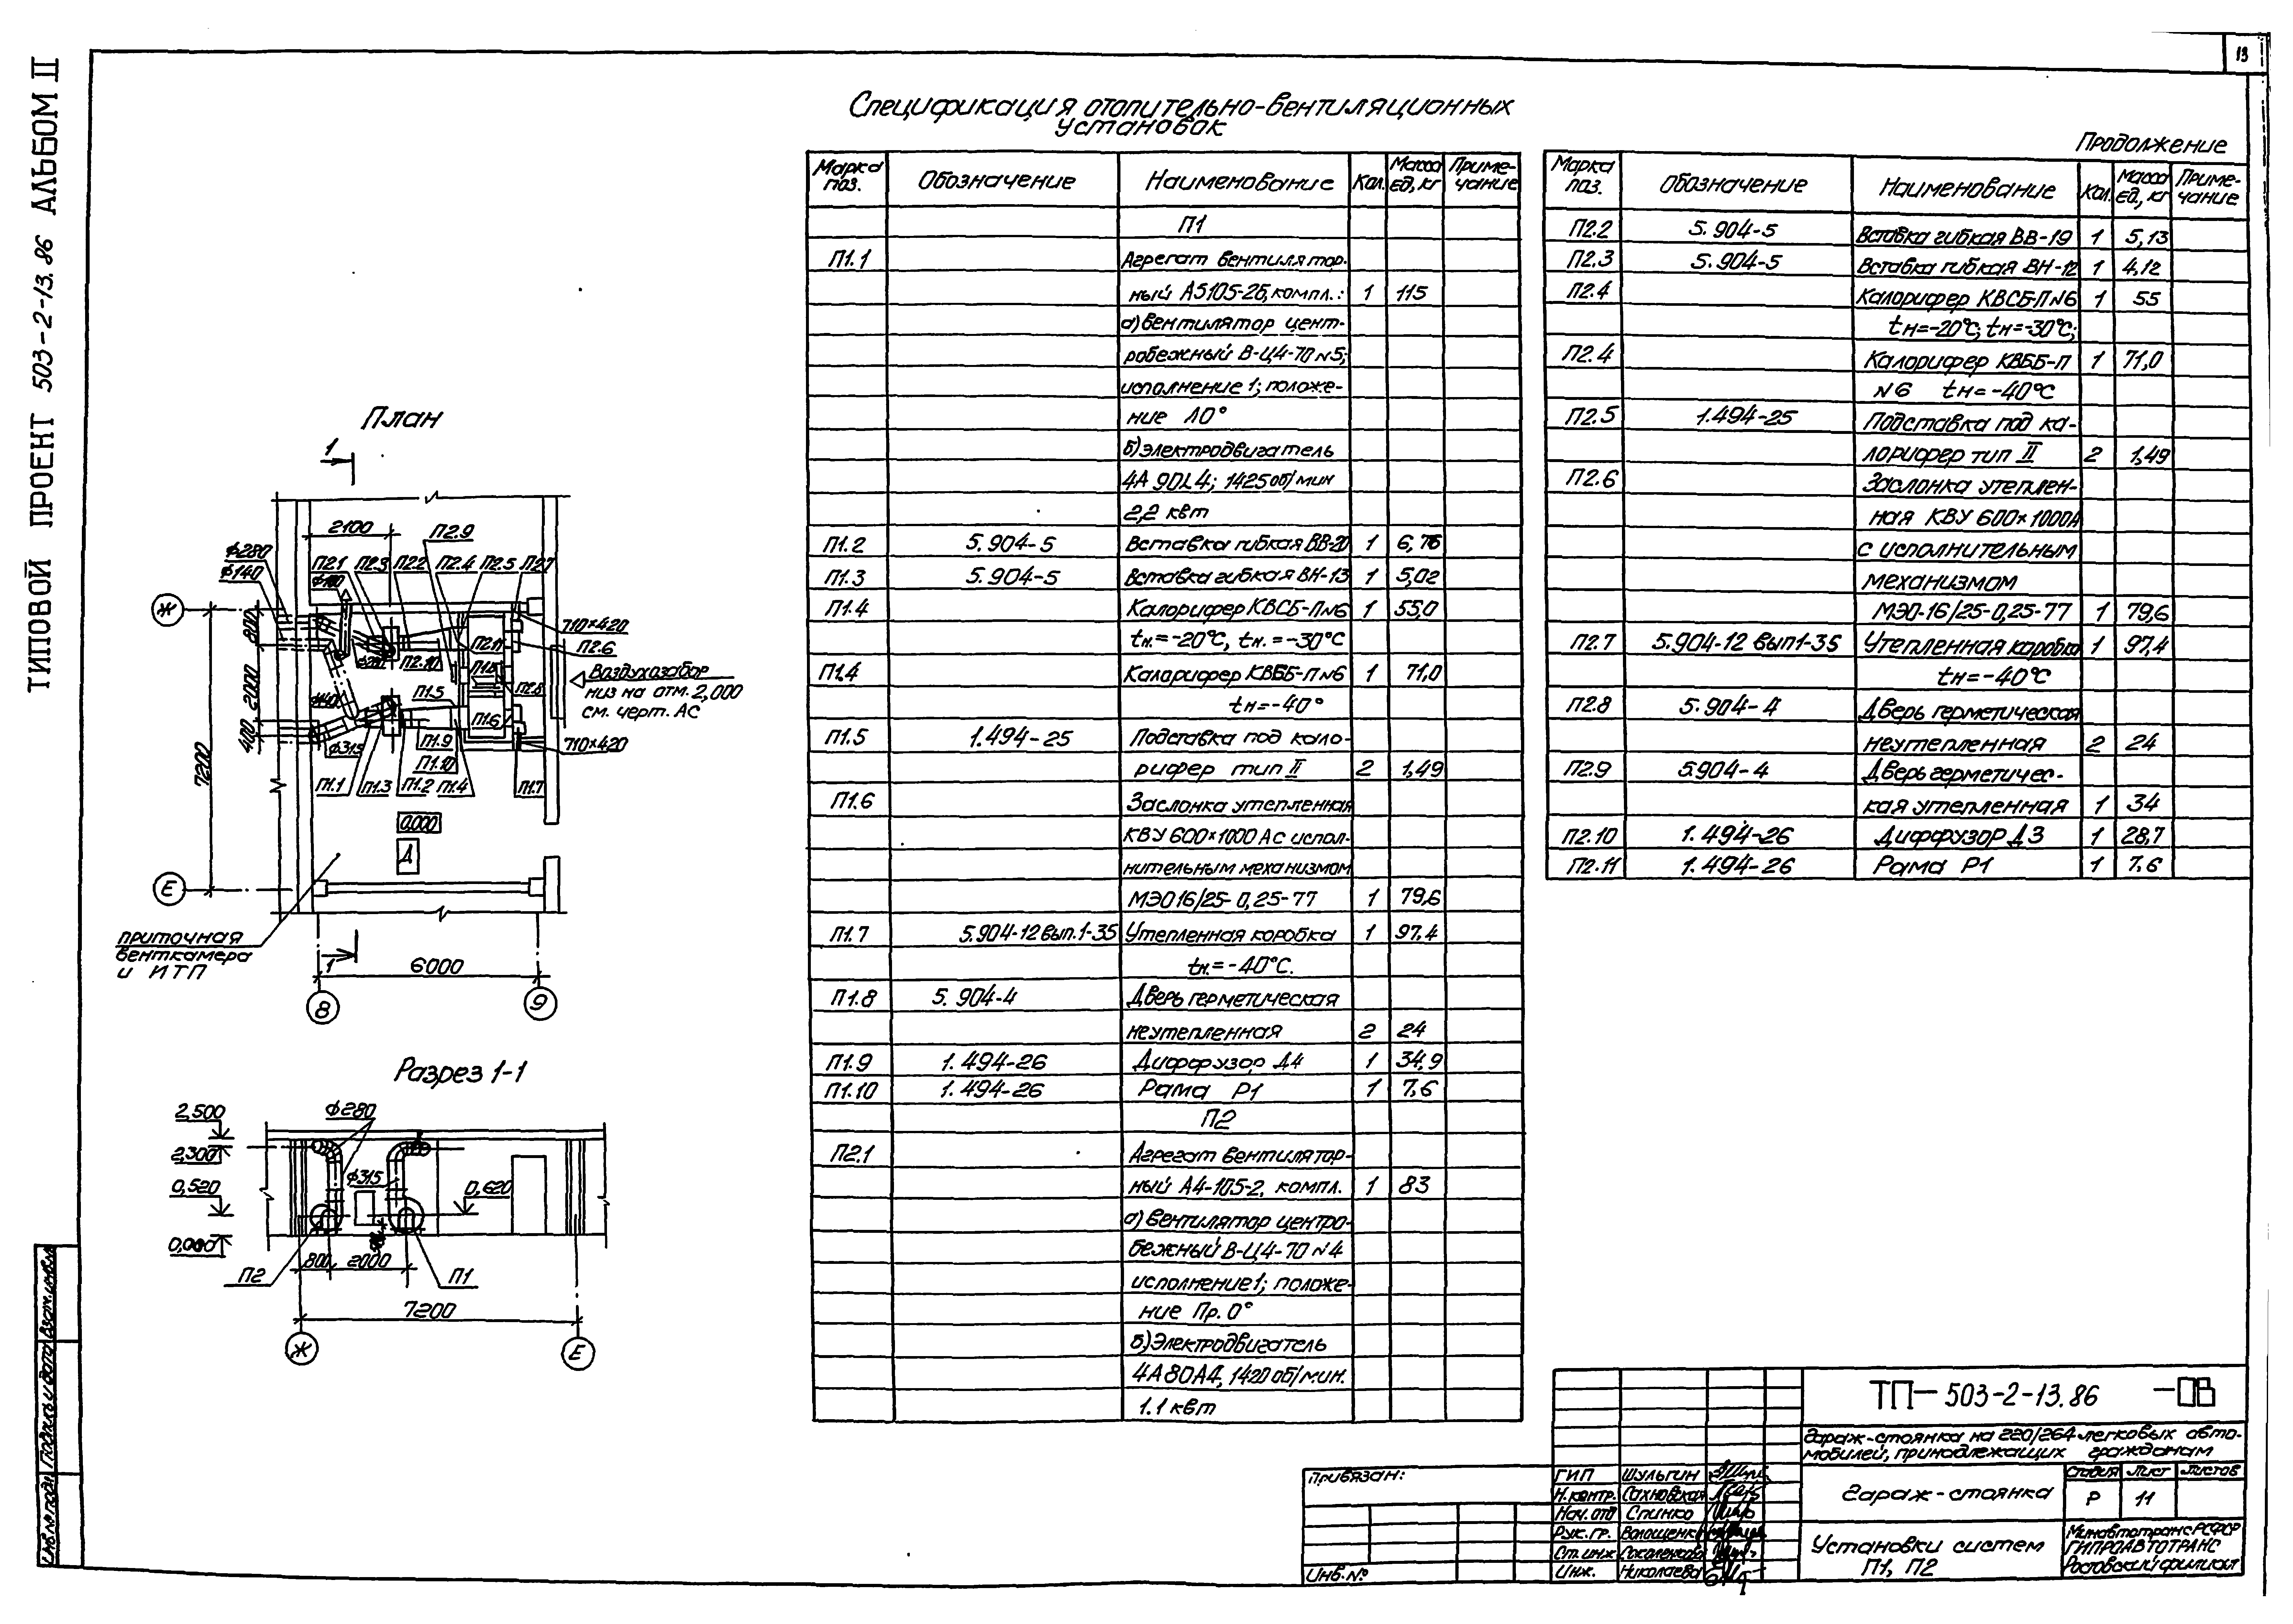 13
ТИПОВОЙ ПРОЕКТ 503-2-13.86 АЛЬБОМ II
План
1
2100
П2.9
ф280
ф140
П2.1 П2.3 П2.2 П2.4 П2.5 П2.7
Ж
800
710×420
П2.6
П2.11
П2.10
П2.8
Воздухозабор
низ на отм. 2,000
см. черт. АС
2000
П1.5
П1.6
400
ф315
П1.9
П1.10
710×420
П1.1 П1.3 П1.2 П1.4 П1.7
7200
0,000
Д
Е
приточная
венткамера
и ИТП
1
6000
8
9
Разрез 1-1
2,500
ф280
2,300
0,520
ф315
0,620
0,000
800
2000
П2
П1
7200
Ж
Е
Спецификация отопительно-вентиляционных
установок
Марка поз. Обозначение Наименование Кол. Масса ед, кг Примечание
П1
П1.1 Агрегат вентилятор-
ный А5105-2б, компл.: 1 115
а) Вентилятор цент-
робежный В-Ц4-70 №5;
исполнение 1; положе-
ние Л0°
б) Электродвигатель
4А 90L4; 1425 об/мин
2,2 квт
П1.2 5.904-5 Вставка гибкая ВВ-20 1 6,76
П1.3 5.904-5 Вставка гибкая ВН-13 1 5,02
П1.4 Калорифер КВСБ-П №6 1 55,0
tн.=-20°С, tн.=-30°С
П1.4 Калорифер КВББ-П №6 1 71,0
tн=-40°
П1.5 1.494-25 Подставка под кало-
рифер тип II 2 1,49
П1.6 Заслонка утепленная
КВУ 600×1000 А с испол-
нительным механизмом
МЭО 16/25-0,25-77 1 79,6
П1.7 5.904-12 вып.1-35 Утепленная коробка 1 97,4
tн.=-40°С.
П1.8 5.904-4 Дверь герметическая
неутепленная 2 24
П1.9 1.494-26 Диффузор Д4 1 34,9
П1.10 1.494-26 Рама Р1 1 7,6
П2
П2.1 Агрегат вентилятор-
ный А4-105-2, компл. 1 83
а) Вентилятор центро-
бежный В-Ц4-70 №4
исполнение 1; положе-
ние Пр. 0°
б) Электродвигатель
4А80А4, 1420 об/мин.
1.1 квт
Продолжение
Марка поз. Обозначение Наименование Кол. Масса ед, кг Примечание
П2.2 5.904-5 Вставка гибкая ВВ-19 1 5,13
П2.3 5.904-5 Вставка гибкая ВН-12 1 4,12
П2.4 Калорифер КВСБ-П №6 1 55
tн=-20°С; tн=-30°С;
П2.4 Калорифер КВББ-П 1 71,0
№6 tн=-40°С
П2.5 1.494-25 Подставка под ка-
лорифер тип II 2 1,49
П2.6 Заслонка утеплен-
ная КВУ 600×1000А
с исполнительным
механизмом
МЭО-16/25-0,25-77 1 79,6
П2.7 5.904-12 вып1-35 Утепленная коробка 1 97,4
tн=-40°С
П2.8 5.904-4 Дверь герметическая
неутепленная 2 24
П2.9 5.904-4 Дверь герметичес-
кая утепленная 1 34
П2.10 1.494-26 Диффузор Д3 1 28,7
П2.11 1.494-26 Рама Р1 1 7,6
ТП-503-2-13.86 -ОВ
Гараж-стоянка на 220/264 легковых авто-
мобилей, принадлежащих гражданам
ГИП Шульгин
Н.контр. Сахновская
Нач.отд Спинко
Рук.гр. Волощенко
Ст.инж
Инж. Николаева
Гараж-стоянка
Стадия Лист Листов
Р 11
Установки систем
П1, П2
Минавтотранс РСФСР
ГИПРОАВТОТРАНС
Ростовский филиал
Привязан:
Инв.№
Инв.№подл. Подпись и дата Взам.инв.№